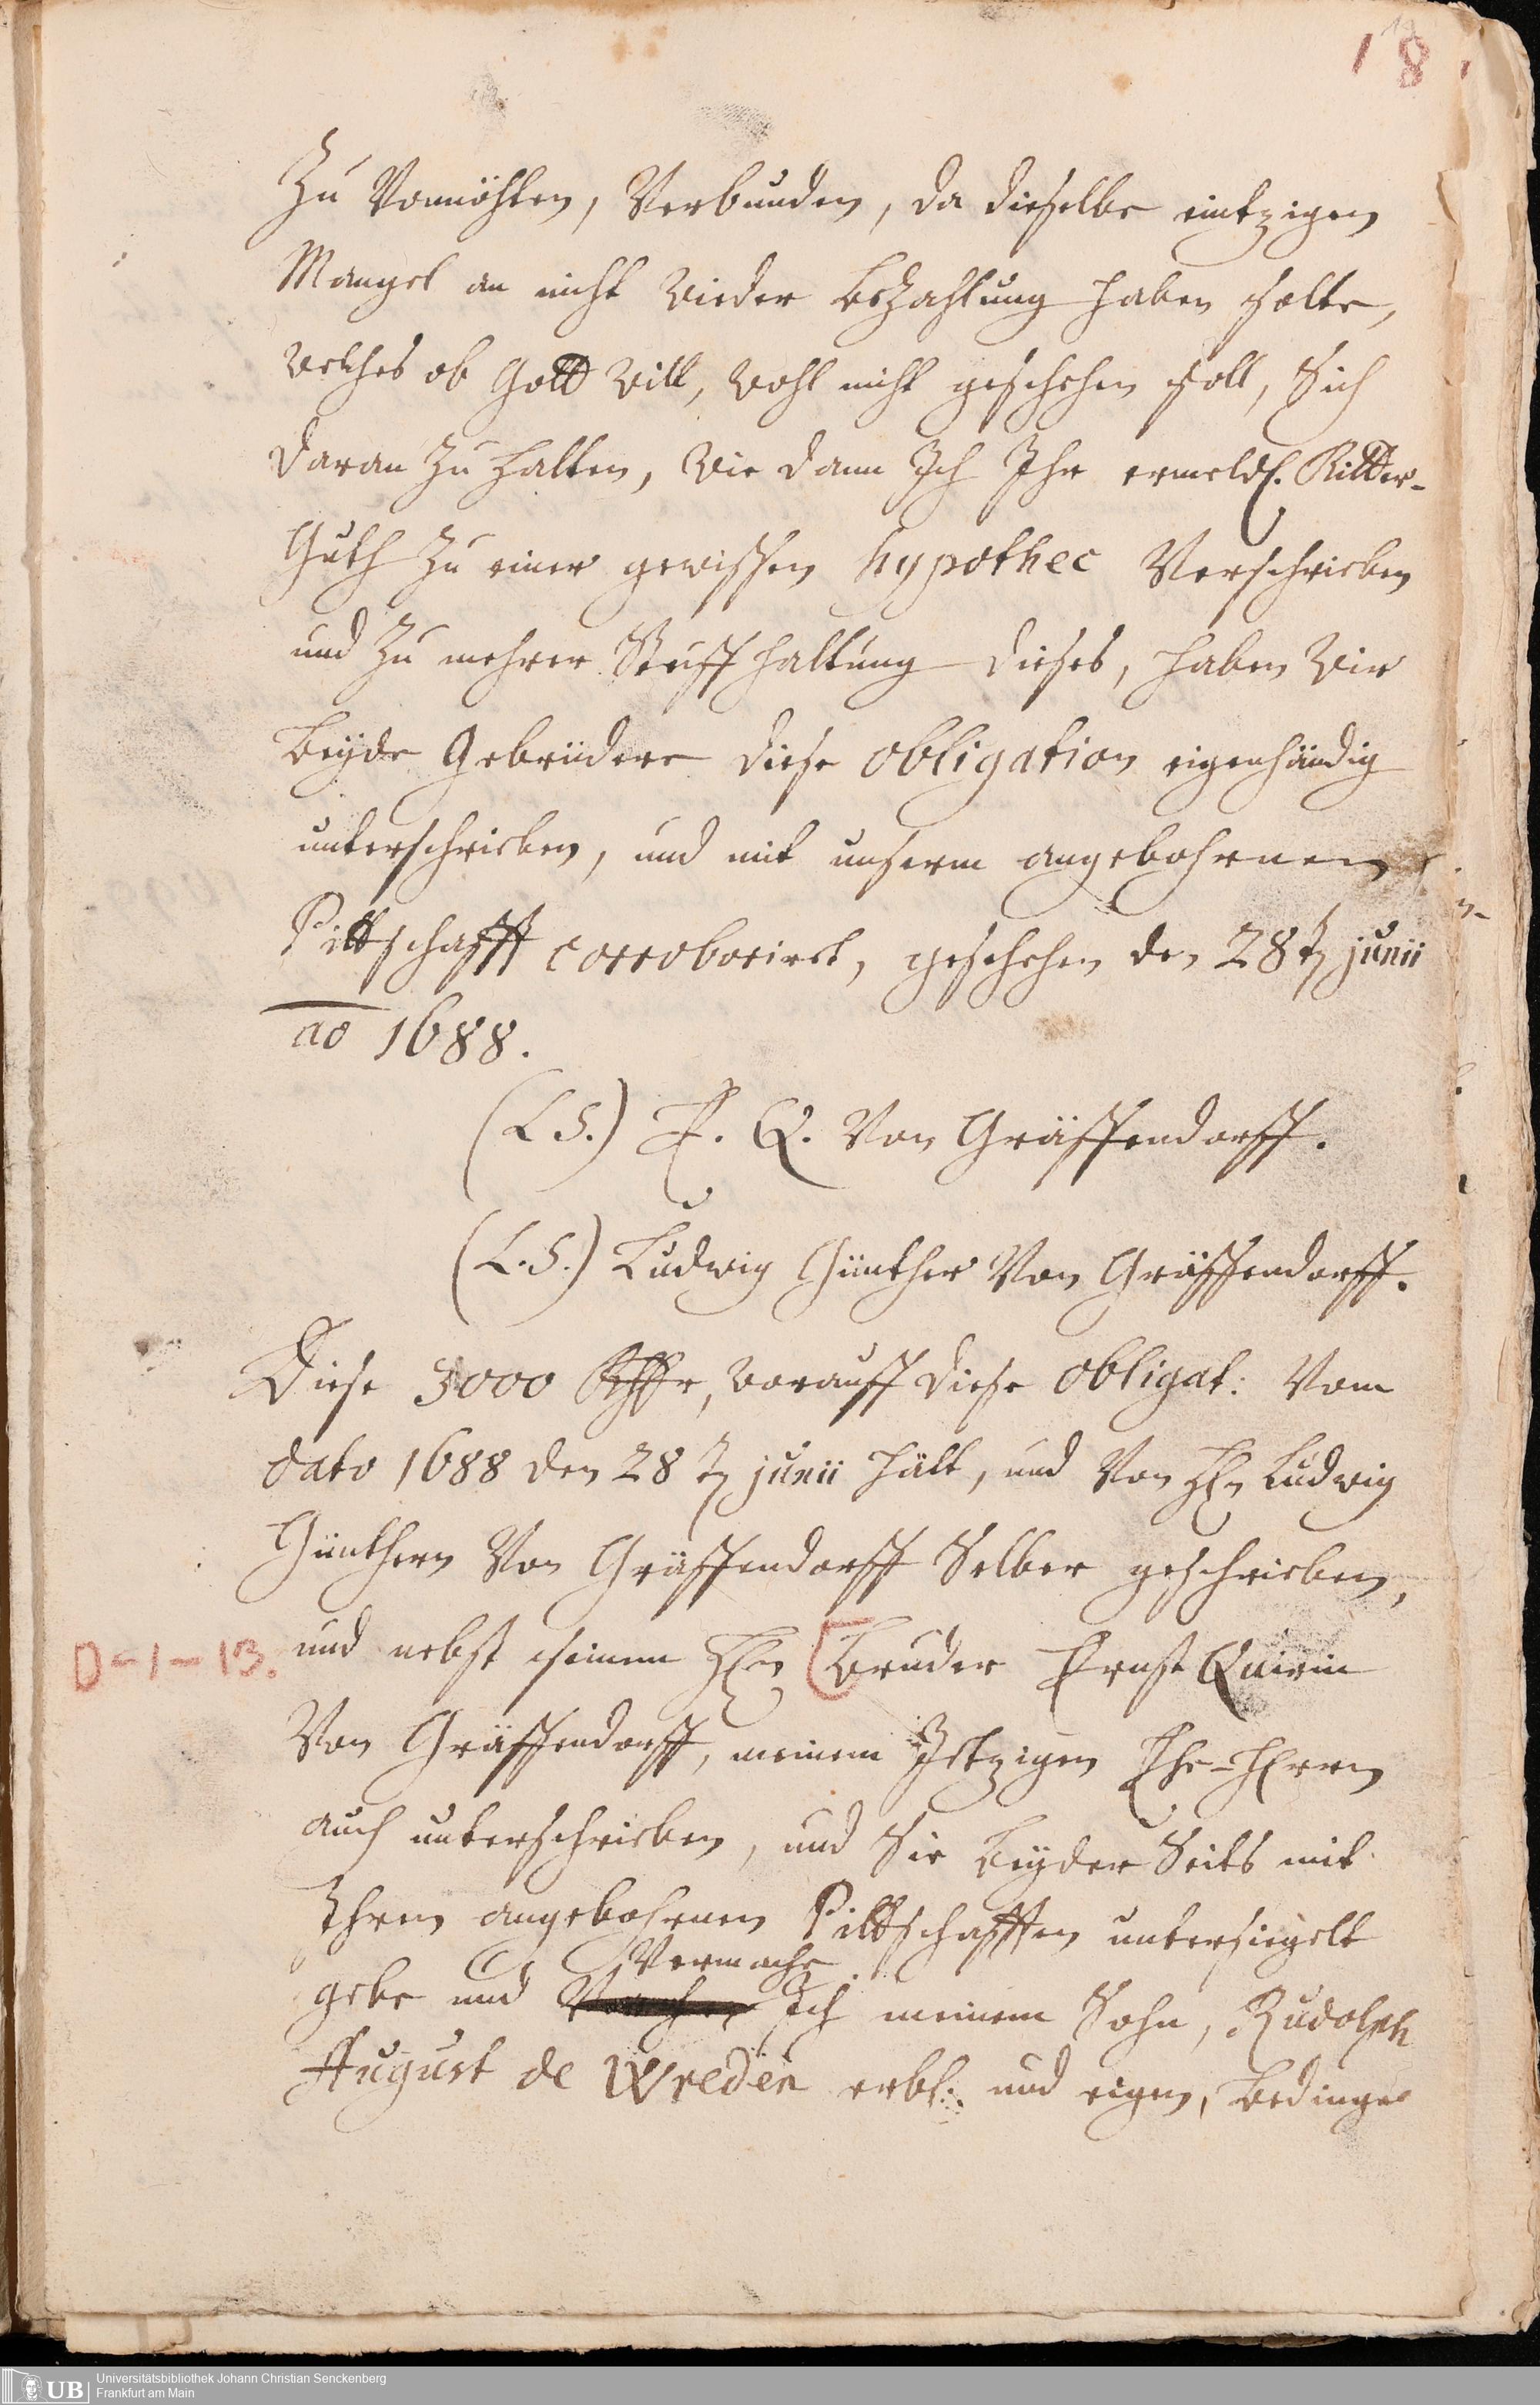 18
Zu Vermöhten, Verbunden, da dieselbe eintzigen
Mangel an nicht wieder bezahlung haben solte,
welches ob Gott will, wohl nicht geschehen soll, Sich
daran zu halten, wie dann Ich Ihr ermeldt. Ritter-
Guth zu einer gewissen hypothec Verschrieben
und zu mehrer Steiffhaltung dieses, haben wir
beyde Gebrüdere diese obligation eigenhändig
unterschrieben, und mit unserm angebohrnen
Pittschafft corroboriret, geschehen den 28 t. junii
ao 1688.
(L S.) E. Q. Von Gräffendorff.
(L. S.) Ludwig Günther Von Gräffendorff.
Diese 3000 Rthlr, worauff diese obligat: Vom
dato 1688 den 28 t. junii hält, und Von HEn Ludwig
Günthern Von Gräffendorff Selber geschrieben,
D-1-13. und nebst seinem HEn Bruder Ernst Quirin
Von Gräffendorff, meinem Jetzigen Ehe-HErrn
auch unterschrieben, und Sie beyder Seits mit
Ihren angebohrnen Pittschafften untersiegelt
Vermache
gebe und Ich meinem Sohn, Rudolph
August de Wreden erbl. und eigen, bedinge
UB Universitätsbibliothek Johann Christian Senckenberg
Frankfurt am Main